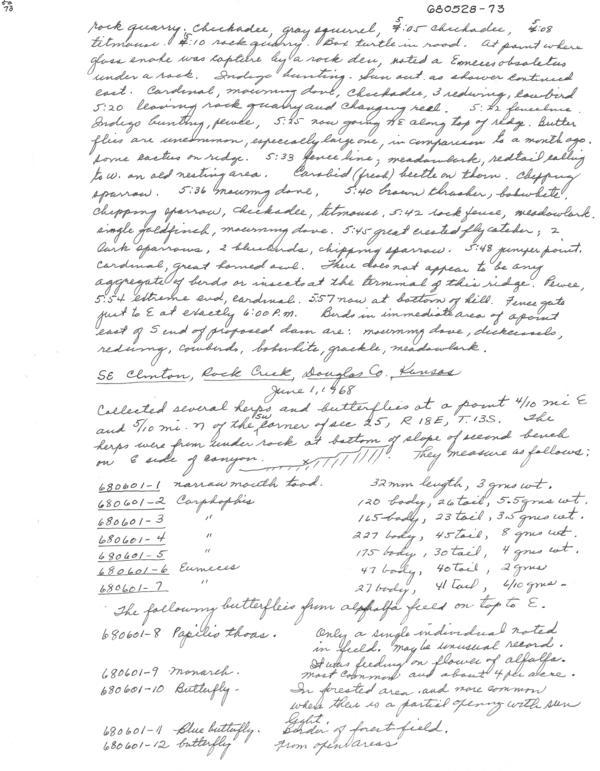 73
680528-73
rock quarry. Chickadee, gray squirrel, 5:05 chickadee, 5:08
titmouse. 5:10 rock quarry. Box turtle in road. At point where
glass snake was capture by a rock den, noted a Eumeces obsoletus
under a rock. Indigo bunting. Sun out as shower continued
east. Cardinal, mourning dove, chickadee, 3 redwing, cowbird
5:20 leaving rock quarry and changing reel. 5:22 fenceline.
Indigo bunting, pewee, 5:25 now going NE along top of ridge. Butter
flies are uncommon, especially large one, in comparison to a month ago.
some cactus on ridge. 5:33 fence line, meadowlark, redtail sailing
to W. an old nesting area. Carabid (fresh) beetle on thorn. Chipping
sparrow. 5:36 mourning dove, 5:40 brown thrasher, bobwhite.
chipping sparrow, chickadee, titmouse, 5:42 rock fence, meadowlark.
single goldfinch, mourning dove. 5:45 great crested flycatcher, 2
lark sparrows, 2 bluebirds, chipping sparrow. 5:48 juniper point.
Cardinal, great horned owl. There does not appear to be any
aggregate of birds or insects at the terminal of this ridge. Pewee,
5:54 extreme end, cardinal. 5:57 now at bottom of hill. Fence gate
just to E at exactly 6:00 P.M. Birds in immediate area of a point
east of S end of proposed dam are: mourning dove, dickcissels,
redwing, cowbirds, bobwhite, grackle, meadowlark.
SE Clinton, Rock Creek, Douglas Co. Kansas
June 1, 1968
Collected several herps and butterflies at a point 4/10 mi E
and 5/10 mi. N of the SW corner of sec 25, R 18E, T.13S. The
herps were from under rock at bottom of slope of second bench
on E side of canyon. They measure as follows:
680601-1 narrow mouth toad. 32mm length, 3 gms wt.
680601-2 Carphophis 120 body, 26 tail, 5.5 gms wt.
680601-3 " 165 body, 23 tail, 3.5 gms wt.
680601-4 " 227 body, 45 tail, 8 gms wt.
680601-5 " 175 body, 30 tail, 4 gms wt.
680601-6 Eumeces 47 body, 40 tail, 2 gms
680601-7 " 27 body, 41 tail, 6/10 gms -
The following butterflies from alphalfa field on top to E.
680601-8 Papilio thoas. Only a single individual noted
in field. may be unusual record.
It was feeding on flower of alfalfa.
680601-9 monarch. most common and about 4 per acre.
680601-10 Butterfly - In forested area and more common
where there is a partial opening with sun
light.
680601-11 Blue butterfly. Border of forest-field.
680601-12 butterfly from open areas